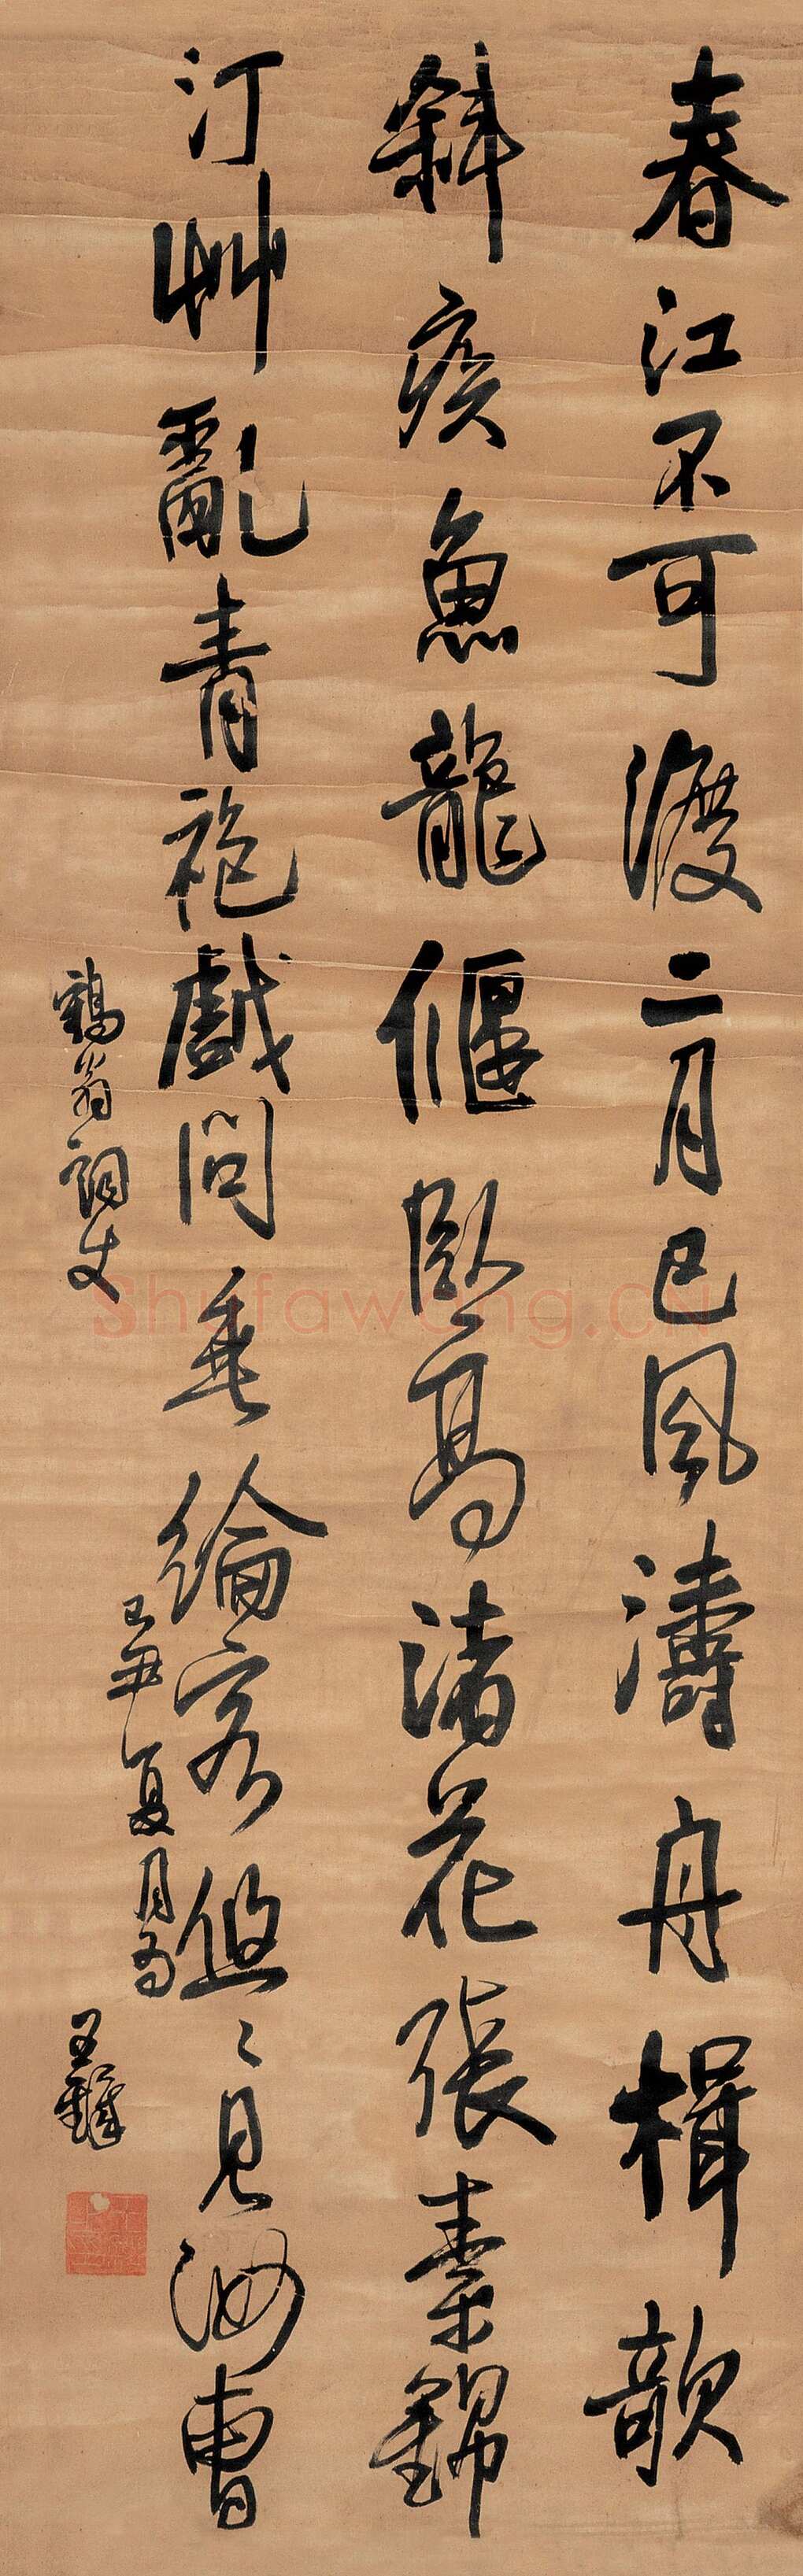 春江不可渡二月已風濤舟楫欹
斜疾魚龍偃臥高渚花張素錦
汀艸亂青袍戲問垂綸客悠〻見汝曹
鶴翁詞丈
己丑夏月書
王鐸
Shufawang.CN